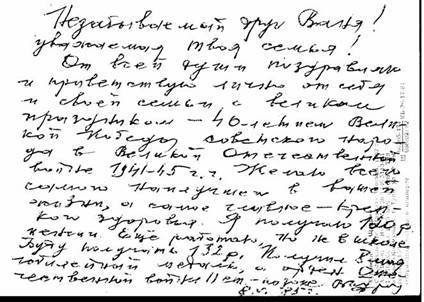 Незабываемый друг Ваня!
уважаемая твоя семья!
От всей души поздравляю
и приветствую лично от себя
и своей семьи с великим
праздником – 40-летием Вели-
кой Победы советского наро-
да в Великой Отечественной
войне 1941-45 г.г. Желаю всего
самого наилучшего в вашей
жизни, а самое главное – креп-
кого здоровья. Я получаю 120 р.
пенсии. Ещё работаю, но не в школе
Буду получать 132 р. Получил
юбилейный медаль, а орден Оте-
чественной войны II ст – позже.
8.V.85г.